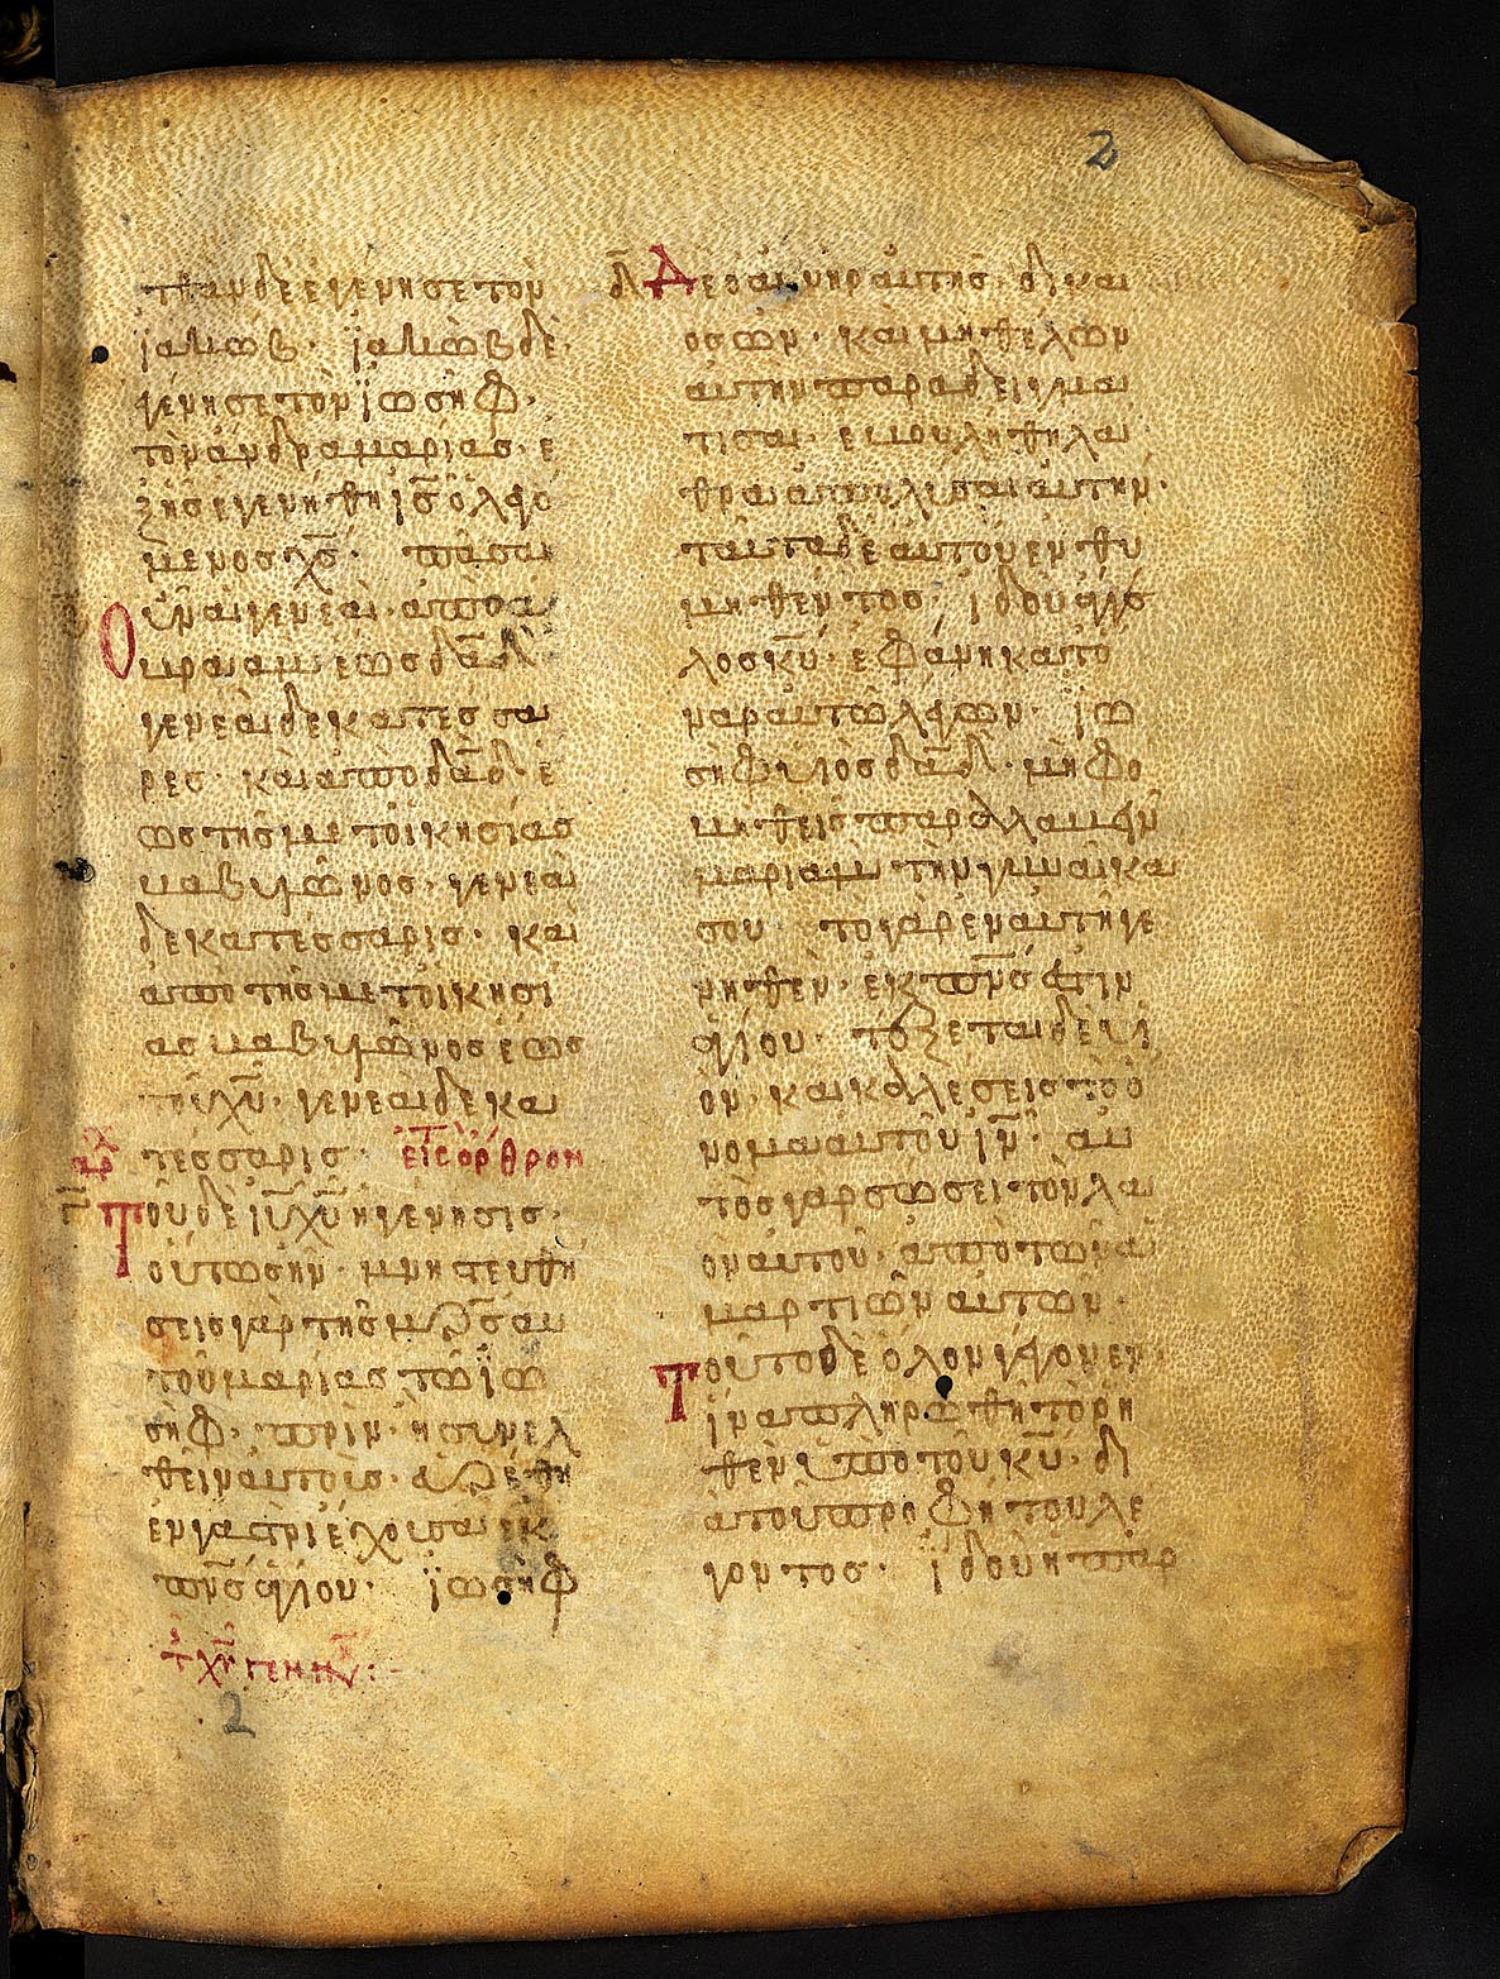 2
τθαν δὲ ἐγένησε τὸν
ϊακωβ· ϊακὼβ δὲ·
γένησε τὸν ϊωσὴφ·
τὸν ἀνδρα μαρίας· ἐ
ξῆς ἐγενήθη ις̄ ὁ λεγό
μενος χς̄· πᾶσαι
Οὖν αἱ γενεαὶ· ἀπὸ ἀ
βραὰμ ἑως δᾱδ·
γενεαὶ δεκατέσσα
ρες· καὶ ἀπὸ δᾱδ· ἑ
ως τῆς μετοικησίας
βαβυλῶνος· γενεαὶ
δεκατέσσαρις· καὶ
ἀπὸ τῆς μετοικησί
ας βαβυλῶνος ἑως
τοῦ χῡ· γενεαὶ δεκα
τέσσαρις· εἰς τ ὀρθρον
αρχ
Τοῦ δὲ ιῡ χῡ ἡ γένησις·
οὑτως ἦν· μνηστευθη
σεις γὰρ τῆς μρ̄ς αυ
τοῦ μαρίας τῶ ϊω
σὴφ· πρὶν ἢ συνελ
θεῖν αυτοὺς· εὑρέθη
ἐν γαστρὶ ἐχουσα ἐκ
πνς̄ ἁγίου· ϊωσὴφ
τ χῡ γενν
2
Δὲ ὁ ἀνὴρ αυτῆς· δίκαι
ος ὢν· καὶ μὴ θέλων
αυτην παραδειγμα
τίσαι· ἐβουλήθη λα
θρα ἀπολῦσαι αυτήν·
ταῦτα δὲ αυτοῦ ἐνθυ
μηθέντος· ϊδοὺ ἀγγε
λος κῡ· ἐφάνη κατ ὀ
ναρ αυτῶ λέγων· ϊω
σὴφ υἱὸς δᾱδ· μὴ φο
βηθεὶς παραλαβεῖν
μαριὰμ τὴν γυναῖκα
σου· τὸ γὰρ ἐν αυτῆ γε
νηθὲν· ἐκ πνς̄ ἐστιν
ἁγίου· τέξεται δὲ υἱ
ὸν· καὶ καλέσεις τὸ ὀ
νομα αυτοῦ ιν̄· αυ
τὸς γὰρ σώσει τὸν λα
ὸν αυτοῦ· ἀπὸ τῶν ἁ
μαρτιῶν αυτῶν·
Τοῦτο δὲ ὁλον γέγονεν·
ἱνα πληρωθῆ τὸ ρη
θὲν ὑπὸ τοῦ κῡ· δι
ὰ τοῦ προφήτου λέ
γοντος· ϊδοὺ ἡ παρ